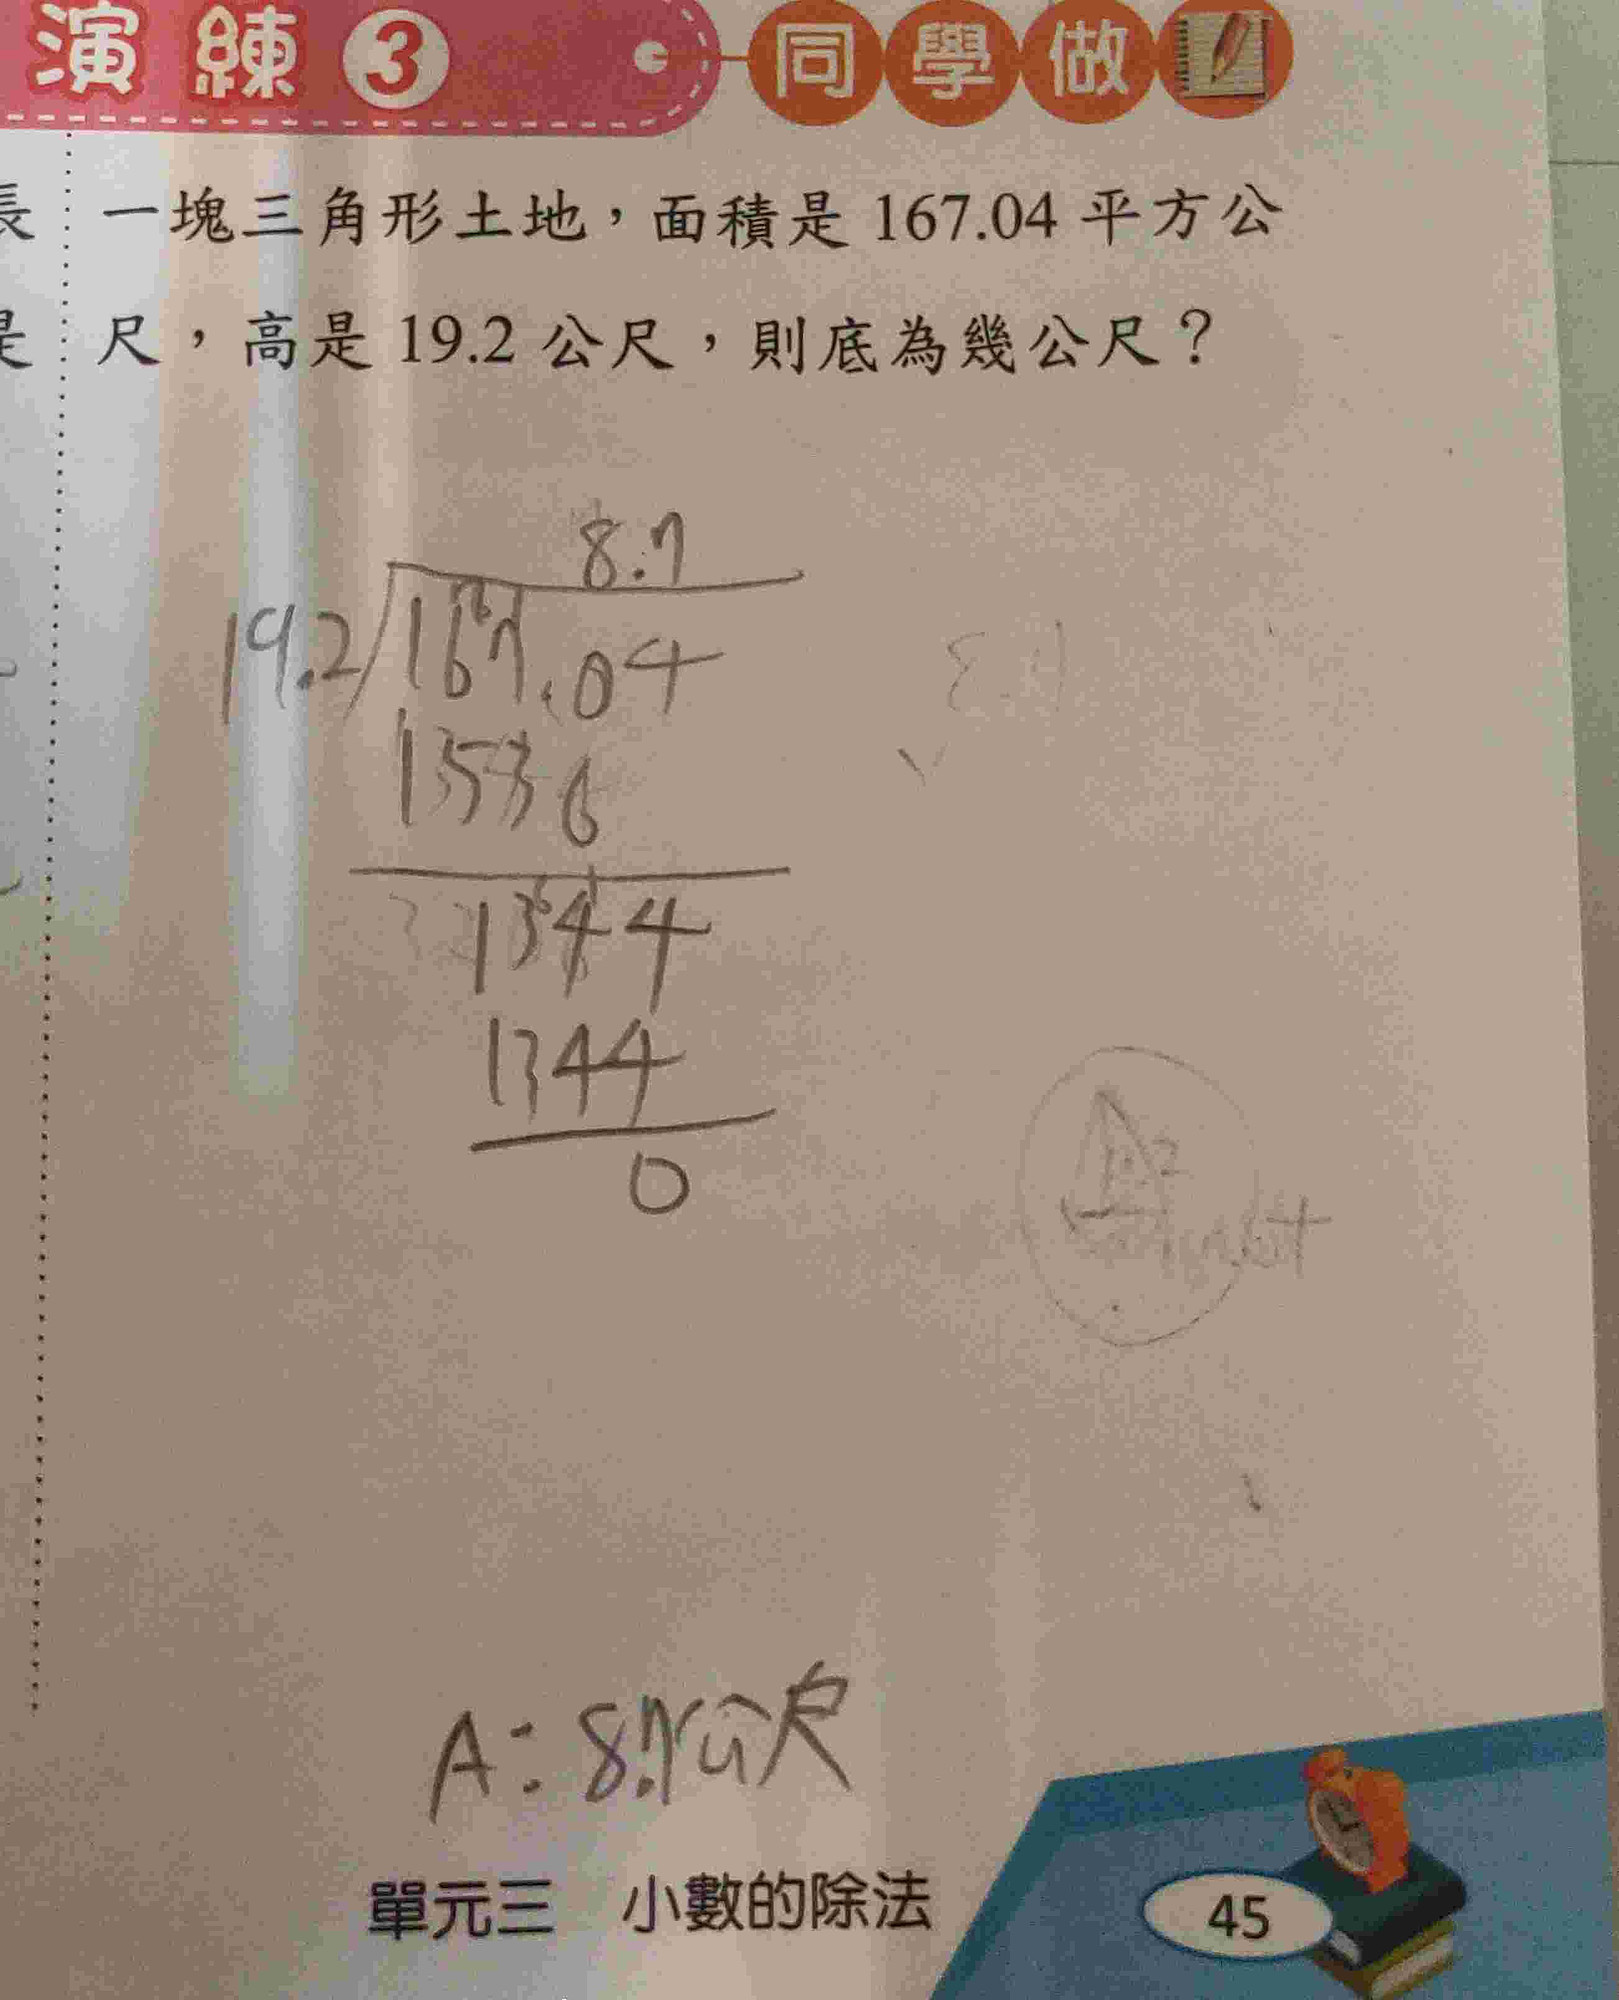 演練3
同學做
長 一塊三角形土地，面積是 167.04 平方公
是 尺，高是 19.2 公尺，則底為幾公尺？
8.7
19.2 167.04
1536
1344
1344
0
A：8.7公尺
單元三 小數的除法
45